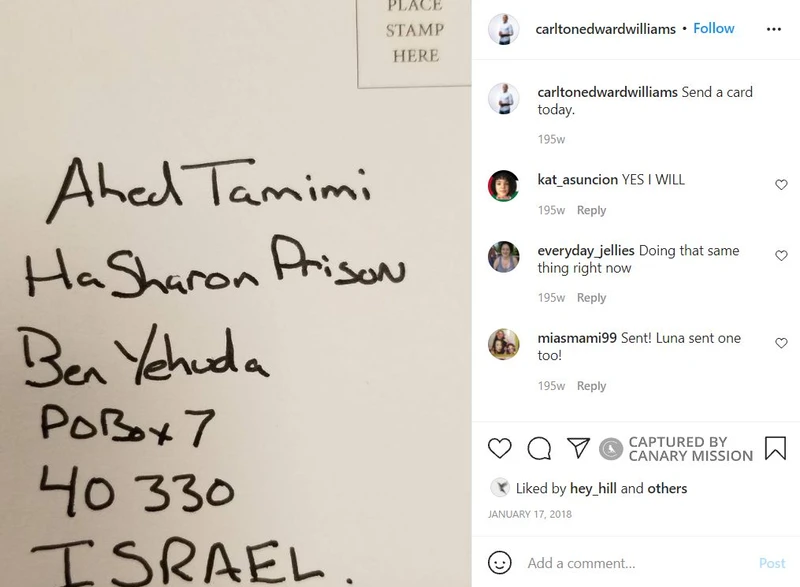 PLACE
STAMP
HERE
Ahed Tamimi
HaSharon Prison
Ben Yehuda
POBox 7
40 330
ISRAEL.
carltonedwardwilliams • Follow
carltonedwardwilliams Send a card
today.
195w
kat_asuncion YES I WILL
195w Reply
everyday_jellies Doing that same
thing right now
195w Reply
miasmami99 Sent! Luna sent one
too!
195w Reply
CAPTURED BY
CANARY MISSION
Liked by hey_hill and others
JANUARY 17, 2018
Add a comment... Post